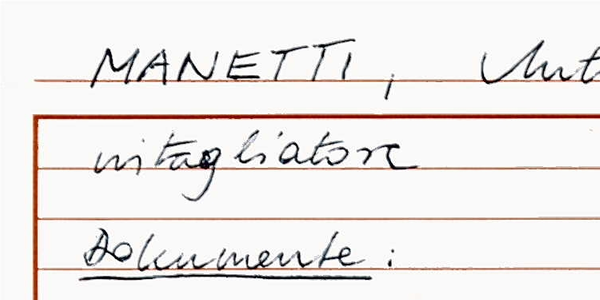 MANETTI, Ant
intagliatore
Dokumente: